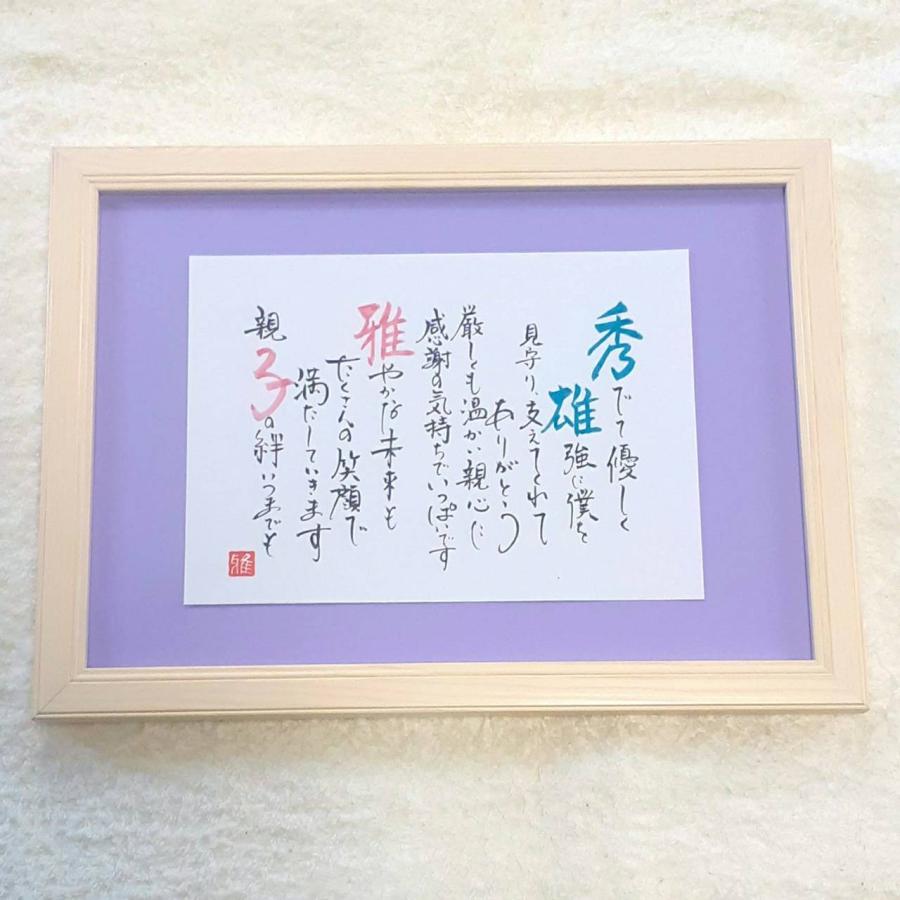 秀でて優しく
雄強に僕を
見守り、支えてくれて
ありがとう
厳しくも温かい親心に
感謝の気持ちでいっぱいです
雅やかな未来も
たくさんの笑顔で
満たしていきます
親子の絆いつまでも
雅